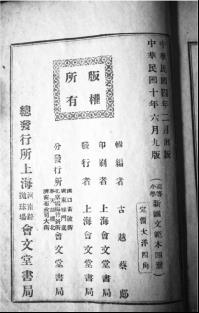 中華民國四年二月出版
中華民國十年六月九版
新撰文範本四冊
定價大洋四角
輯編者 古越蔡郕
印刷者 上海會文堂書局
發行者 上海會文堂書局
分發行所 會文堂書局
總發行所上海 會文堂書局
版權
所有